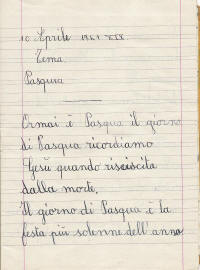 10 Aprile 1941 XIX
Tema
Pasqua
Ormai è Pasqua il giorno
di Pasqua ricordiamo
Gesù quando risciscita
dalla morte.
Il giorno di Pasqua è la
festa più solenne dell'anno